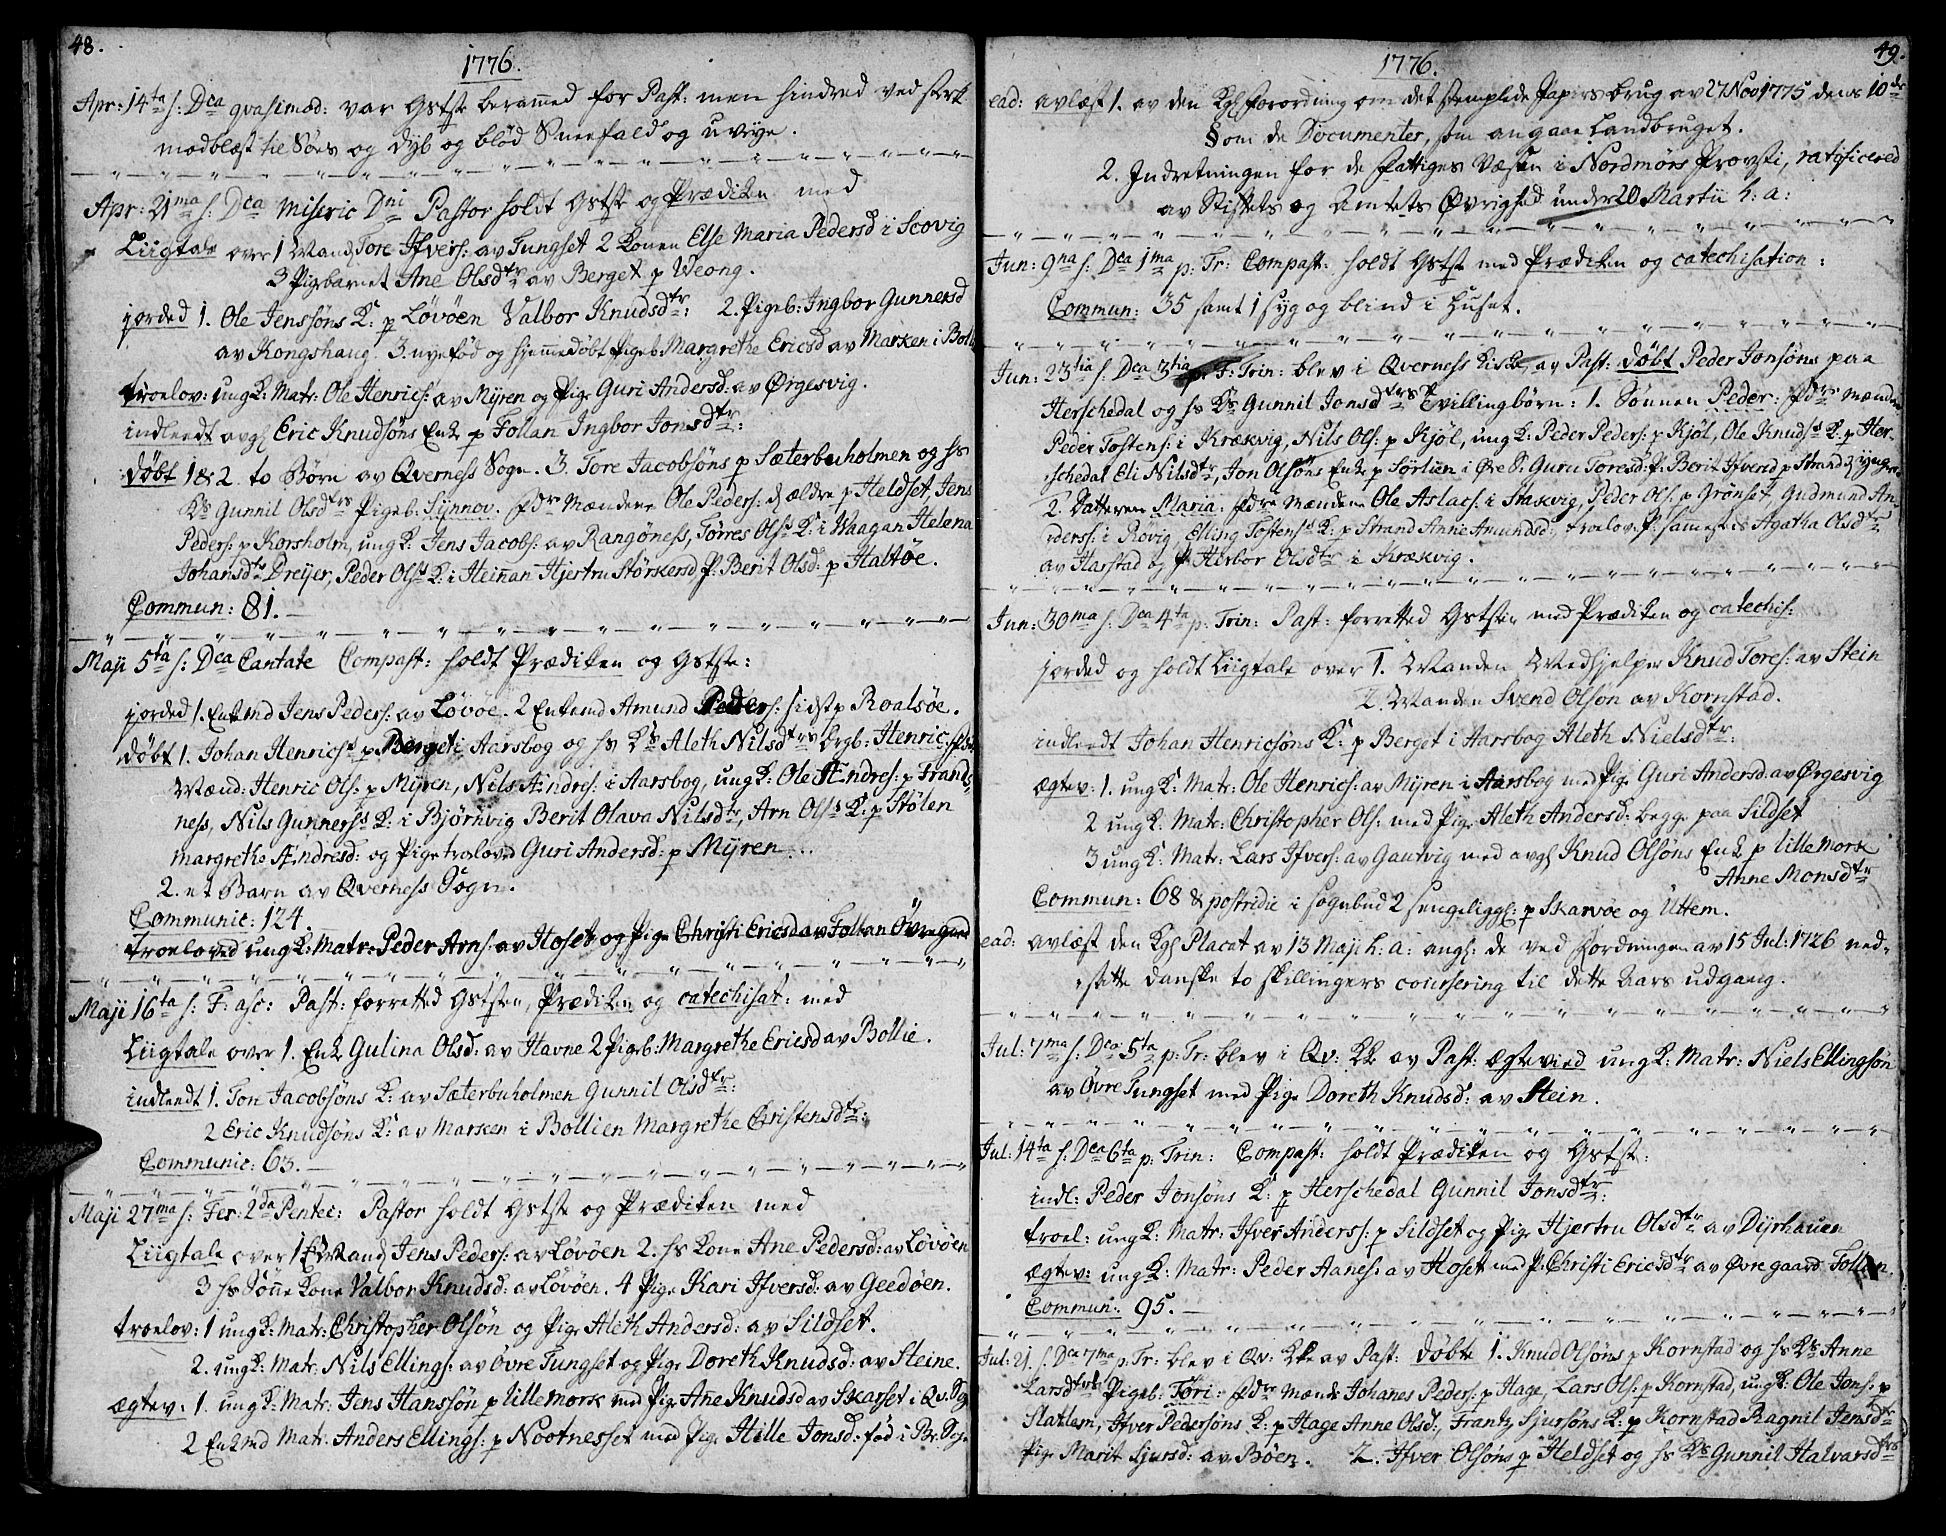 48.
1776.
Apr: 14ta s: Dca qvasimod: var Gstste berammed for Past: men hindred ved stærk
modblæst til Søes og dyb og blød Sneefald og uveye.
Apr: 21ma s: Dca Miseric Dni Pastor holdt Gstste og Prædiken med
Liigtale over 1 Mand Tore Ifvers: av Tungset 2 Konen Else Maria Pedersd i Scovig
3 Pigebarnet Ane Olsdtr av Berget p Weong.
jorded 1. Ole Jenssøns K: p Løvøen Valbor Knudsdtr: 2. Pigeb: Ingbor Gunnersd
av Kongshaug. 3. nyefød og hjemmedøbt Pigeb: Margrethe Ericsd av Marken i Boll
troelov: ung K: Matr: Ole Henrics: av Myren og Pige Guri Andersd: av Ørgesvig.
indleedt avg Eric Knudsøns Enk p Follan Ingbor Jonsdtr:
døbt 1 & 2 to Børn av Qverness Sogn. 3. Tore Jacobsøns p Sæterbuholmen og hs
Ks Gunnil Olsdtrs Pigeb: Synnov. fdre Mændene Ole Peders: d ældre p Heldset, Jens
Peders: p Korsholm, ung K: Jens Jacobs: av Rangøness, Tørres Olss K: i Waagan Helena
Johansdtr Dreyer, Peder Olss K: i Heinan Hjertru Størkersd P: Berit Olsd: p Haltøe.
Commun: 81.
Maji 5ta s: Dca Cantate Compast: holdt Prædiken og Gstste:
jorded 1. Enkemd Jens Peders: av Løvøe. 2 Enkemd Amund Peders: sidst p Roalsøe.
døbt 1. Johan Henricss p Berget i Aarsbog og hs Ks Aleth Nilsdtrs drgb: Henric: fdre
Mænd: Henric Ols: p Myren, Nils Ændres: i Aarsbog, ung K: Ole Ændres: p Frands,
ness, Nils Gunnerss K: i Bjørnvig Berit Olava Nilsdtr, Arn Olss K: p Stølen
Margrethe Ændresd: og Pige troloved Guri Andersd: p Myren.
2. et Barn av Qverness Sogn.
Communic: 124.
troeloved ung K: Matr: Peder Arns: av Hoset og Pige Christi Ericsd av Follan Øvre gaard
Maji 16ta s: F: asc: Past: forretted Gststen, Prædiken og catechisat: med
Liigtale over 1. Enk Gulina Olsd: av Havne 2 Pigeb: Margrethe Ericsd av Bollie.
indleedt 1. Tore Jacobsøns K: av Sæterbuholmen Gunnil Olsdtr:
2 Eric Knudsøns K: av Marken i Bollien Margrethe Christensdtr:
Communic: 63.
Maji 27ma s: Fer: 2da Pentec: Pastor holdt Gstste og Prædiken med
Liigtale over 1 Mand Jens Peders: av Løvøen 2. hs Kone Ane Pedersd: av Løvøen
3 hs Sønne Kone Valbor Knudsd: av Løvøen. 4 Pige Kari Ifversd: av Geedøen.
troelov: 1 ung K: Matr: Christopher Olsøn og Pige Aleth Andersd: av Sildset.
2. ung K: Matr: Nils Ellings: av Øvre Tungset og Pige Doreth Knudsd: av Steine.
ægtev: 1. ung K: Matr: Jens Hanssøn p lille mork med Pige Ane Knudsd av Skarset i Qv: Sogn
2 Enkmd Matr: Anders Ellings: p Nootnesset med Pige Hille Jonsd: fød i Br: Sogn
49.
1776.
ead: avlæst 1. av den Kgl forordning om det stemplede Papirs brug av 27 Nov 1775 dens 10de
§ om de Documenter, som angaae Landbruget.
2. Indretningen for de fattiges Væsen i Nordmørs Provsti, ratificered
av Stiftets og Amtets Øvrighed under 20 Martii h: a:
Jun: 9na s: Dca 1ma p: Tr: Compast: holdt Gstste med Prædiken og catechisation:
Commun: 35 samt 1 syg og blind i Huset.
Jun: 23tia s: Dca 3tia p: F: Trin: blev i Qverness Kirke, av Past: døbt Peder Jonsøns paa
Herschedal og hs Ks Gunnil Jonsdtrs Tvillingbørn: 1. Sønnen Peder: fdre Mænden
Peder Tostens: i Krækvig, Nils Ols: p Kjøl, ung K: Peder Peders: p Kjøl, Ole Knudss K: p Her-
schedal Eli Nilsdtr, Jon Olsøns Enk p Sørlien i Øre S: Guru Toresd: P: Berit Ifversd p Strand d yngre
2. Datteren Maria: fdre Mændene Ole Aslacs: i Stakvig, Peder Ols: p Grønset, Gudmund An-
ders: i Røvig, Elling Tostenss K: p Strand Anne Amundsd:, troelov: P: sammest Agatha Olsdtr
av Harstad og P: Herbor Olsdtr i Krækvig.
Jun: 30ma s: Dca 4ta p: Trin: Past: forretted Gststen med Prædiken og catechis:
jorded og holdt Liigtale over 1. Manden Medhjelper Knud Tores: av Stein
2. Manden Svend Olson av Kornstad.
indleedt Johan Henricsøns K: p Berget i Aarsbog Aleth Nielsdtr:
ægtev: 1. ung K: Matr: Ole Henrics: av Myren i Aarsbog med Pige Guri Andersd: av Ørgesvig
2 ung K: Matr: Christopher Ols: med Pige Aleth Andersd: begge paa Sildset
3 ung K: Matr: Lars Ifvers: av Gautvig med avg Knud Olsøns Enk p lille mork
Anne Monsdtr
Commun: 68 & postridie i sognebud 2 sengeligg: p Skarvøe og Uttem.
ead: avlæst den Kgl Placat av 13 Maji h: a: angl: de ved Fordningen av 15 Jul: 1726 ned-
satte danske to skillingers coursering til dette Aars udgang.
Jul: 7ma s: Dca 5ta p: Tr: blev i Qv: Kke av Past: ægtevied ung K: Matr: Niels Ellingsøn
av Øvre Tungset med Pige Doreth Knudsd: av Stein.
Jul: 14ta s: Dca 6ta p: Trin: Compast: holdt Prædiken og Gstste:
indl: Peder Jonsøns K: p Herschedal Gunnil Jonsdtr:
troel: ung K: Matr: Ifver Anderss: p Sildset og Pige Hjertru Olsdtr av Dyrhauen
ægtev: ung K: Matr: Peder Aanes: av Hoset med P: Christi Ericsdtr av Øvre gaard Follan.
Commun: 95.
Jul: 21. s: Dca 7ma p: Tr: blev i Qv: Kke av Past: døbte 1. Knud Olsøns p Kornstad og hs Ks Anne
Larsdtrs Pigeb: Tøri: fdre Mænd: Johanes Peders: p Hage, Lars Ols: p Kornstad, ung K: Ole Jons: p
Slatlem, Ifver Pedersøns K: p Hage Anne Olsd:, Frantz Sjursøns K: p Kornstad Ragnil Jensdtr
Pige Marit Sjursd: av Bøen. 2. Ifver Olsøns p Heldset og hs Ks Gunnil Halvarsdtrs